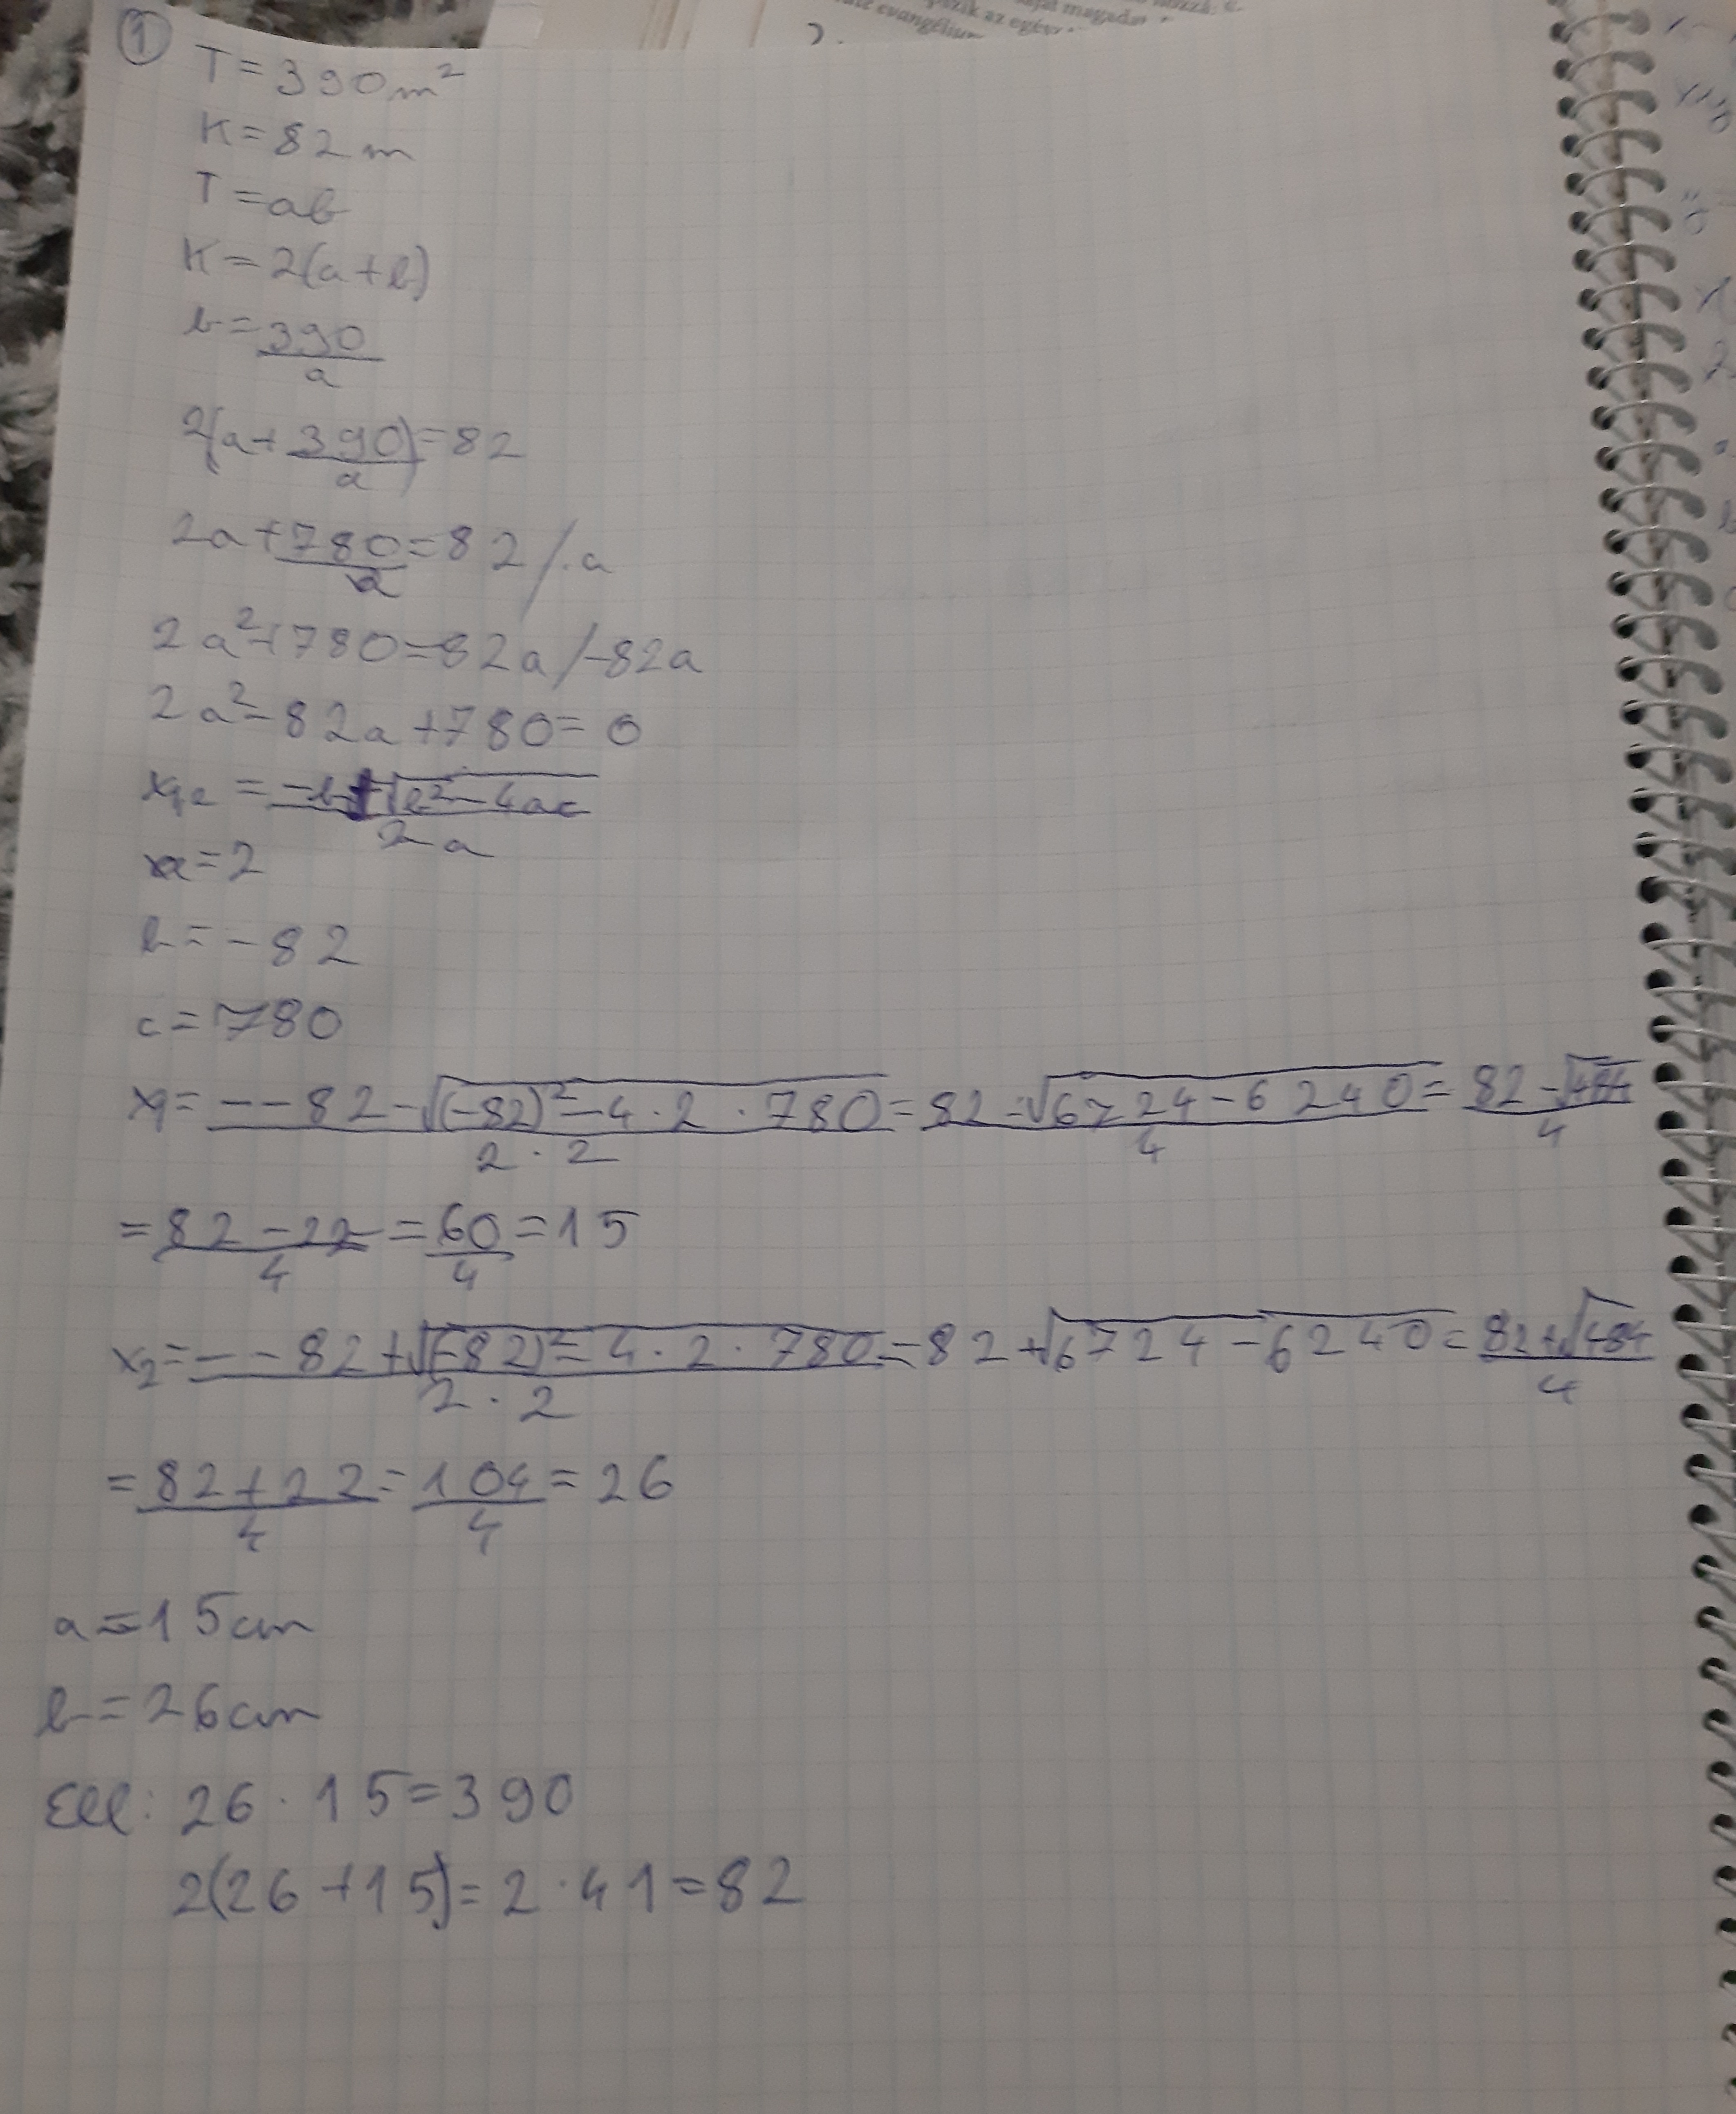 magadat
pszik az egész
evangélium
①
T = 390 m²
K = 82 m
T = ab
K = 2(a+b)
b = 390/a
2(a + 390/a) = 82
2a + 780/a = 82 /·a
2a² + 780 = 82a /-82a
2a² - 82a + 780 = 0
x₁,₂ = (-b ± √(b² - 4ac))/2a
a = 2
b = -82
c = 780
x₁ = (--82 - √((-82)² - 4·2·780))/(2·2) = (82 - √(6724 - 6240))/4 = (82 - √484)/4
= (82 - 22)/4 = 60/4 = 15
x₂ = (--82 + √((-82)² - 4·2·780))/(2·2) = 82 + √(6724 - 6240) = (82 + √484)/4
= (82 + 22)/4 = 104/4 = 26
a = 15 cm
b = 26 cm
Ell: 26 · 15 = 390
2(26 + 15) = 2 · 41 = 82